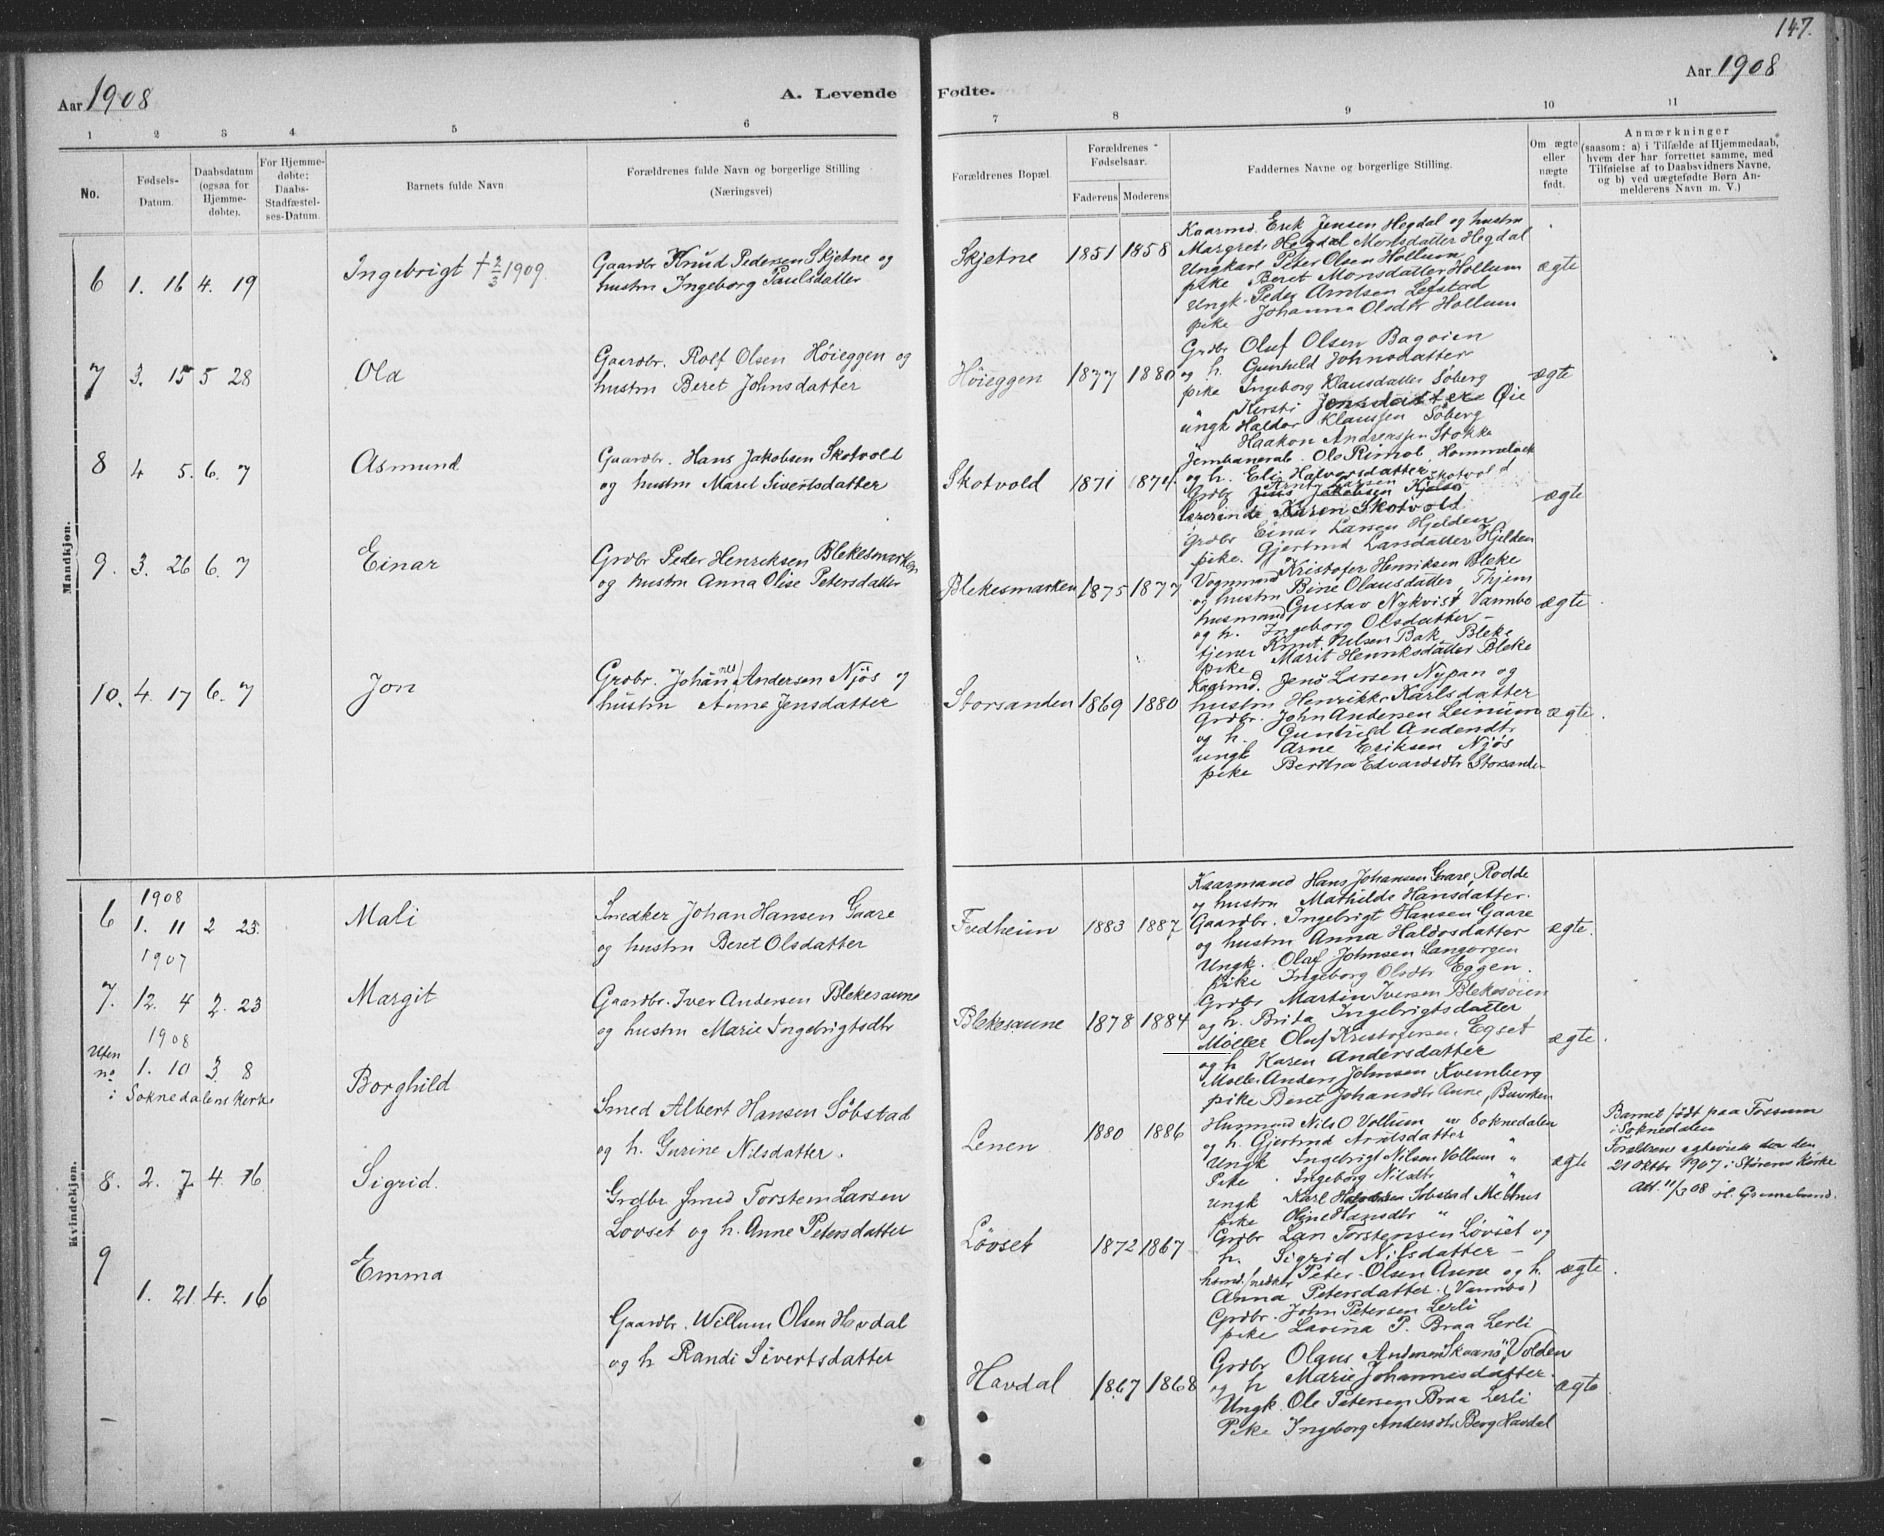 147.
Aar 1908
A. Levende
Fødte.
Aar 1908
1 2 3 4 5 6 7 8 9 10 11
No.
Fødsels-
Datum.
Daabsdatum
(ogsaa for
Hjemme-
døbte).
For Hjemme-
døbte:
Daabs-
Stadfæstel-
ses-Datum.
Barnets fulde Navn
Forældrenes fulde Navn og borgerlige Stilling
(Næringsvei)
Forældrenes Bopæl.
Forældrenes
Fødselsaar.
Faderens
Moderens
Faddernes Navne og borgerlige Stilling.
Om ægte
eller
nægte
født.
Anmærkninger
(saasom: a) i Tilfælde af Hjemmedaab,
hvem der har forrettet samme, med
Tilføielse af to Daabsvidners Navne,
og b) ved uægtefødte Børn An-
melderens Navn m. V.)
Mandkjøn.
6 1. 16 4. 19
Ingebrigt † 2/3 1909.
Gaardbr Knud Pedersen Skjetne og
hustru Ingeborg Paulsdatter
Skjetne 1851 1858
Kaarmd. Erik Jensen Hegdal og hustru
Margrete Hegdal Monsdatter Hegdal
Ungkarl Peter Olsen Hollum
pike Beret Monsdatter Hollum
Ungk. Peder Arntsen Lefstad
pike Johanna Olsdtr Hollum
ægte
7 3. 15 5 28
Ola
Gaardbr. Rolf Olsen Höieggen og
hustru Beret Johnsdatter
Höieggen 1877 1880
Grdbr Oluf Olsen Bagøien
og h. Gunhild Johnsdatter
pike Ingeborg Klausdatter Söberg
" Kersti Jensdatter Øie
ungk Haldor Klaussen Söberg
Haakon Andreassen Stokke
ægte
8 4 5. 6. 7
Asmund
Gaardbr. Hans Jakobsen Skotvold
og hustru Marit Sivertsdatter
Skotvold 1871 1874
Jernbanearb. Ole Rimol, Hommelvik
og h. Eli Halvorsdatter
Grdbr Jens Jakobsen
lærerinde Karen Skotvold
Grdbr Einar Larsen Hjelden
pike. Gjertrud Larsdatter Hjelden
ægte
9. 3. 26 6. 7
Einar
Grdbr Peder Henriksen Blekesmarken
og hustru Anna Olise Petersdatter
Blekesmarken 1875 1877
Vognmand Kristofer Henriksen Bleke
og hustru Bine Olausdatter, Thjem
husmand Gustav Nykvist Vannbo
og h. Ingeborg Olsdatter –
tjener Knut Nilsen Bak, Bleke
pike Marit Henriksdatter Bleke
ægte
10. 4. 17 6. 7
Jon
Grdbr. Johan Andersen Njös og
hustru Anne Jensdatter
Storsanden 1869 1880
Kaarmd. Jens Larsen Nypan og
hustru Henrikke Karlsdatter
Grdbr. John Andersen Leinum
og h. Gunhild Andersdtr
ungk Arne Eriksen Njös
pike Bertha Edvardsdtr Storsanden
ægte
Kvindekjøn.
6 1908
1. 11 2 23
Mali
Snedker Johan Hansen Gaare
og hustru Beret Olsdatter
Fredheim 1883 1887
Kaarmand Hans Johansen Gaare, Rodde
og hustru Mathilde Hansdatter.
Gaardbr. Ingebrigt Hansen Gaare
og hustru Anna Haldosdatter
Ungk. Oluf Johnsen Langørgen
pike Ingeborg Olsdtr Eggen.
ægte
1907
7. 12. 4 2. 23
Margit
Gaardbr. Iver Andersen Blekesaune
og hustru Marie Ingebrigtsdtr
Blekesaune 1878 1884
Grdbr Martin Iversen Blekesøien
og h. Brita Ingebrigtsdatter
Møller Oluf Kristofersen, Egset
og h Karen Andersdatter
Møller Anders Johnsen Kvernberg
pike Beret Johansdtr Aune,
ægte
Uten
no 1908
1. 10 3 8
i Soknedalens kerke
Borghild
Smed Albert Hansen Söbstad
og h. Gurine Nilsdatter.
Lenen 1880 1886
Husmand Nils O Vollum Soknedalen
og h. Gjertrud Arntsdatter "
Ungk Ingebrigt Nilsen Vollum "
Pike Ingeborg Nilsdtr "
Ungk Karl Hansen Söbstad Melhus
pike Oline Hansdtr "
ægte
Barnet født paa Fossum
i Soknedalen
Forældrene egteviede den
21 Oktbr 1907 i Størens Kirke
Att. 11/3 08
8. 2. 7 4. 16
Sigrid.
Grdbr Smed Torstein Larsen
Lovset og h. Anne Petersdatter
Lövset 1872 1867
Grdbr Lars Torstensen Lövset og
h. Sigrid Nilsdatter –
Peter Olsen Aune og h.
Anna Petersdatter (Vannbo)
Grdbr. John Petersen Lerli
pike Lavina P. Braa Lerli
ægte
9 1. 21 4. 16
Emma
Gaardbr. Willum Olsen Havdal
og h Randi Sivertsdatter
Havdal 1867 1868
Grdbr Olaus Andersen Skaanö, Volden
og h Marie Johannesdatter.
Ungk. Ole Petersen Braa Lerli
Pike Ingeborg Andersdtr Berg Havdal
ægte